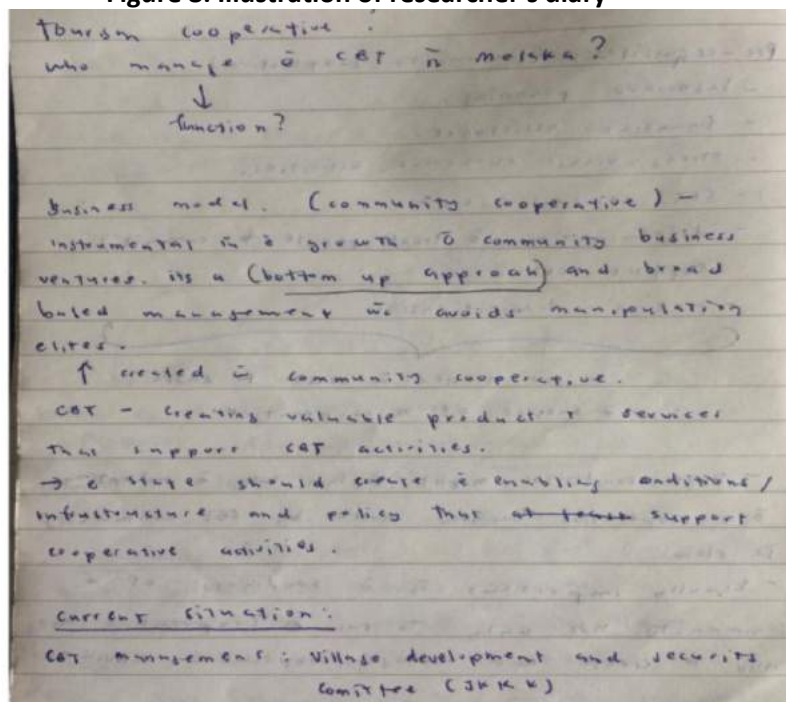 Figure 8: Illustration of researcher's diary
Tourism cooperative :
who manage ō CBT ñ melaka?
↓
function?
Business model. (community cooperative) -
instrumental in ē growth ō community business
ventures. its a (bottom up approach) and broad
based management avoids manipulation
elites.
↑ created community cooperative.
CBT - creating valuable product + services
that support CBT activities.
→ ē state should create ē enabling conditions/
infrastructure and policy that at least support
cooperative activities.
Current situation :
CBT management : Village development and security
comittee (JKKK)